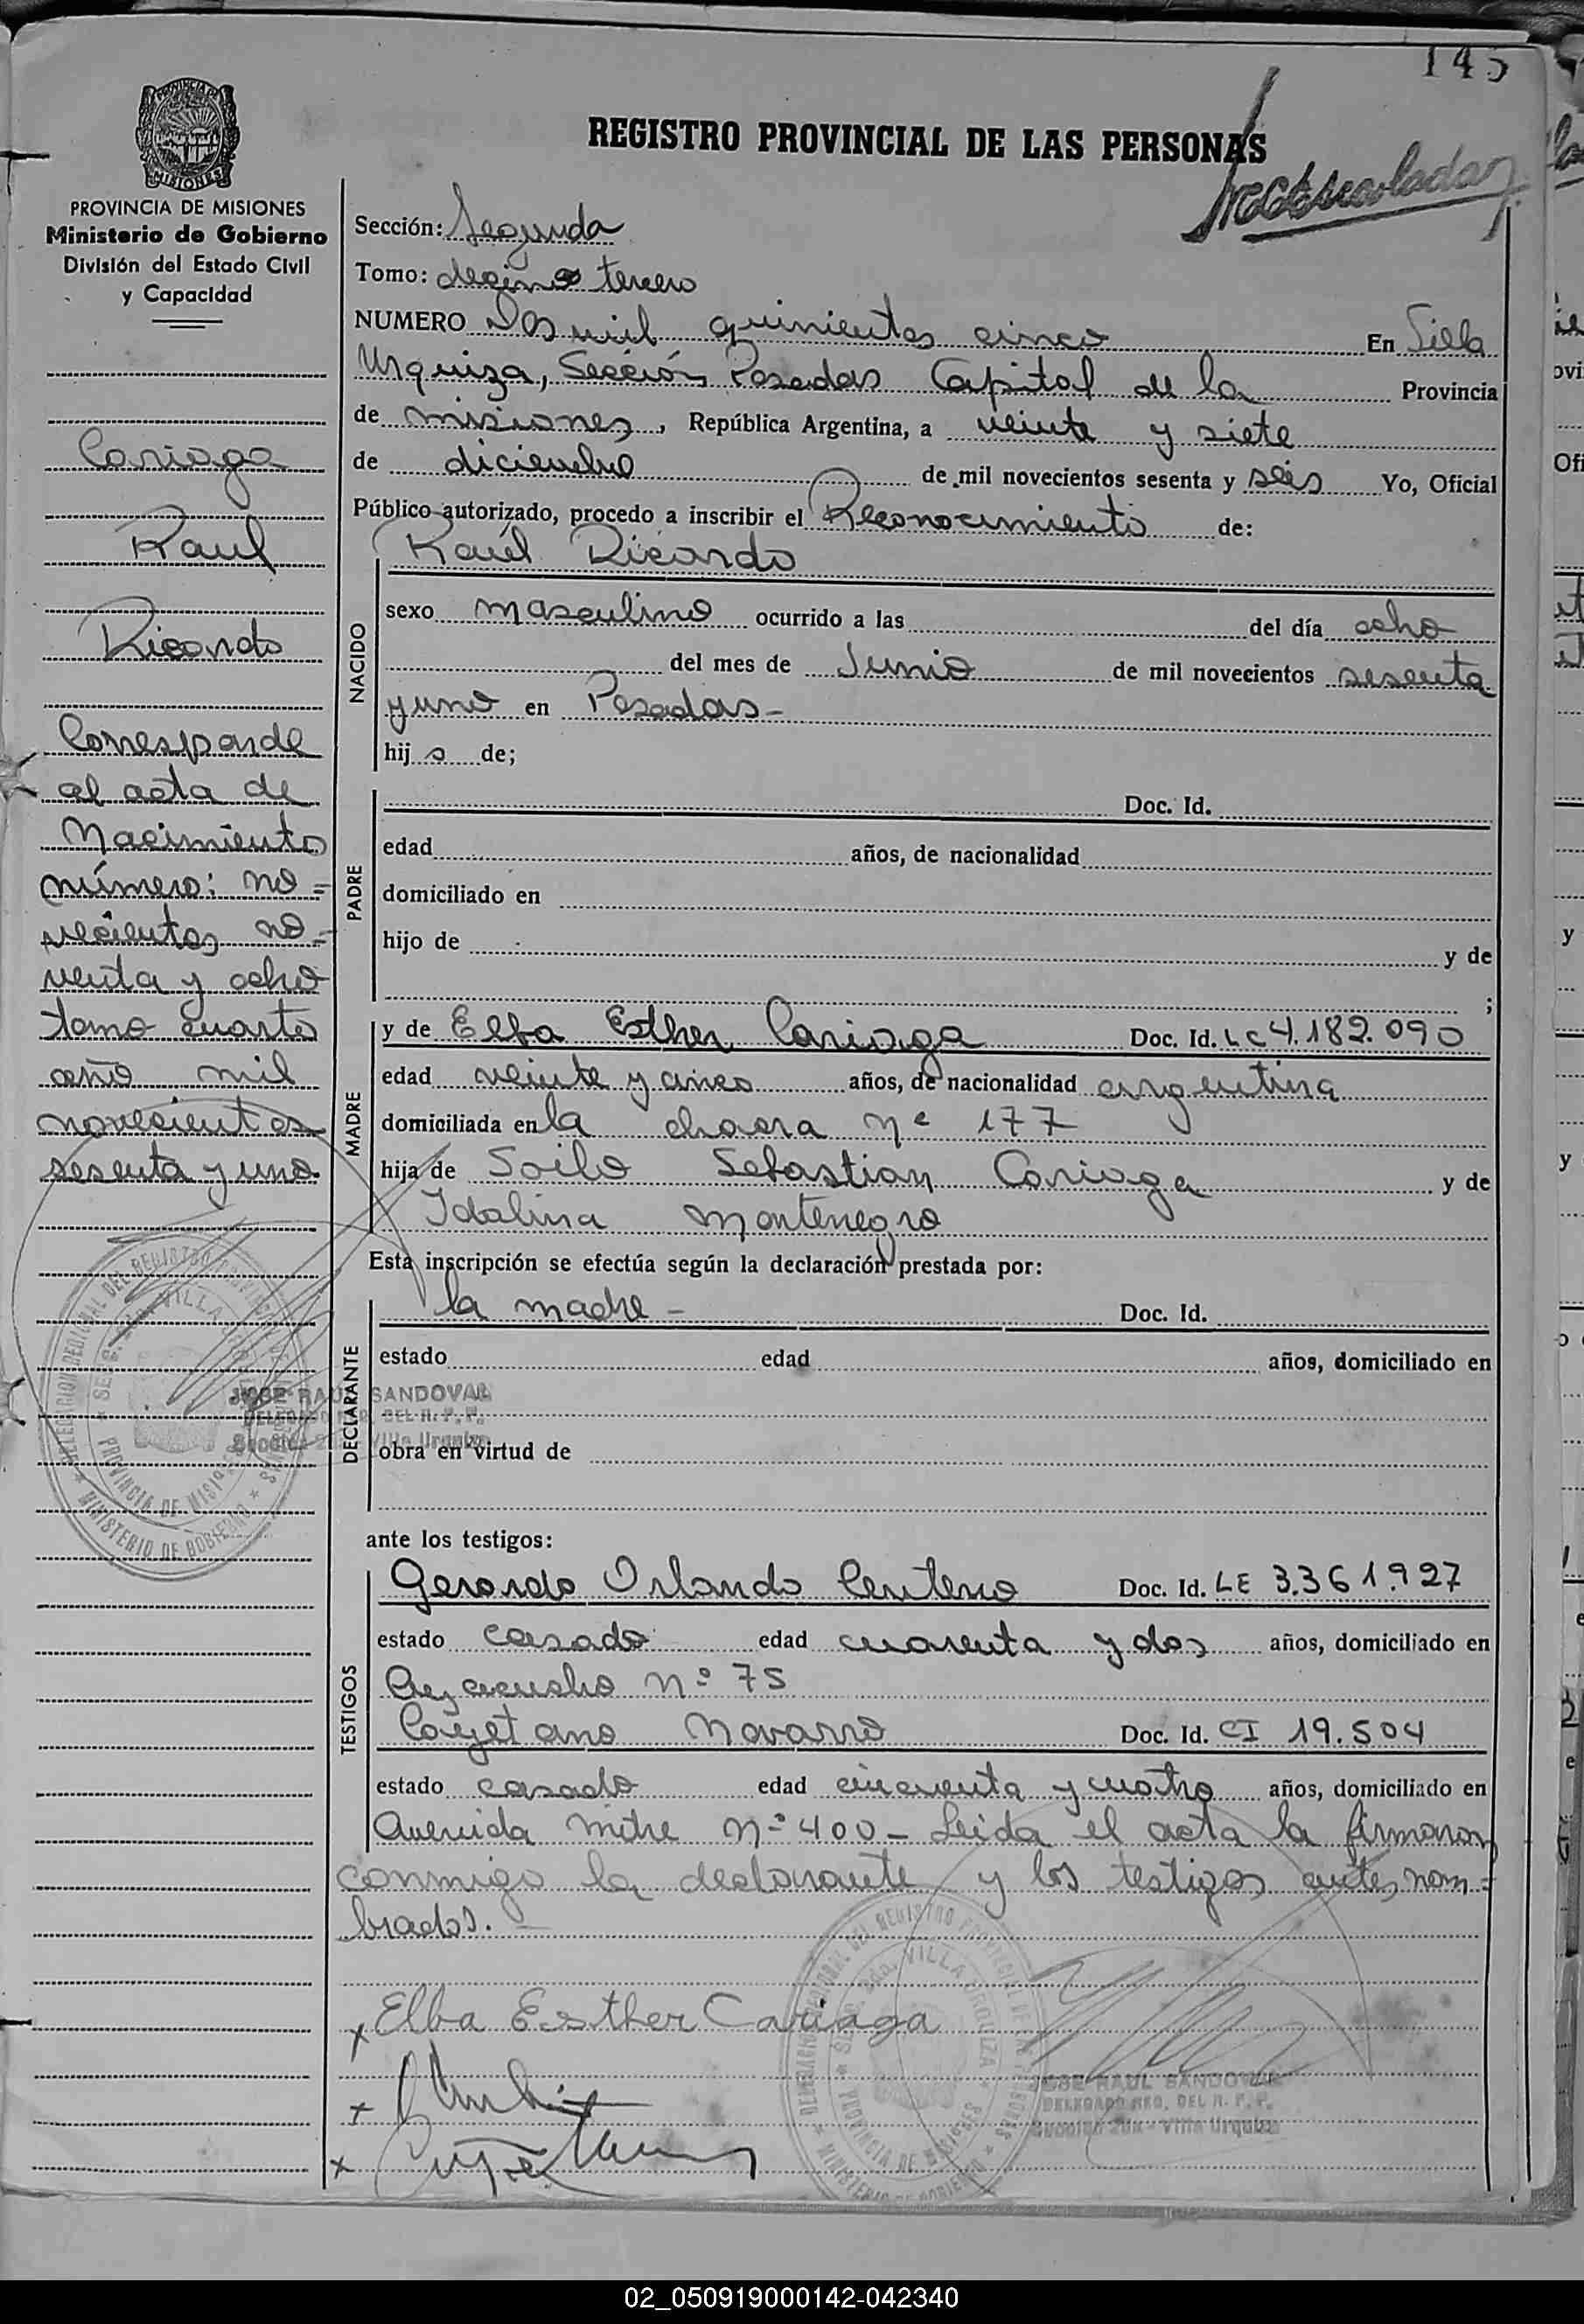 145
REGISTRO PROVINCIAL DE LAS PERSONAS
PROVINCIA DE MISIONES
Ministerio de Gobierno
División del Estado Civil
y Capacidad
Cariaga
Raul
Ricardo
Corresponde
al acta de
Nacimiento
número: no=
vecientos no-
venta y ocho
tomo cuarto
año mil
novecientos
sesenta y uno.
Sección: Segunda
Tomo: decimo tercero
NUMERO Dos mil quinientos cinco En Villa
Urquiza, Sección Posadas Capital de la Provincia
de misiones, República Argentina, a veinte y siete
de diciembre de mil novecientos sesenta y seis Yo, Oficial
Público autorizado, procedo a inscribir el Reconocimiento de:
Raúl Ricardo
NACIDO
sexo masculino ocurrido a las del día ocho
del mes de Junio de mil novecientos sesenta
y uno en Posadas-
hijo de;
PADRE
Doc. Id.
edad años, de nacionalidad
domiciliado en
hijo de y de
;
MADRE
y de Elba Esther Cariaga Doc. Id. LC 4.182.090
edad veinte y cinco años, de nacionalidad argentina
domiciliada en la chacra Nº 177
hija de Soilo Sebastian Cariaga y de
Idalina Montenegro
Esta inscripción se efectúa según la declaración prestada por:
DECLARANTE
la madre - Doc. Id.
estado edad años, domiciliado en
obra en virtud de
JOSE RAUL SANDOVAL
DELEGADO REG. DEL R. P. P.
Sección 2da - Villa Urquiza
DELEGACION REGIONAL DEL REGISTRO PROVINCIAL DE LAS PERSONAS
SECC. 2da. VILLA URQUIZA
PROVINCIA DE MISIONES
MINISTERIO DE GOBIERNO
ante los testigos:
TESTIGOS
Gerardo Orlando Centeno Doc. Id. LE 3.361.927
estado casado edad cuarenta y dos años, domiciliado en
Ayacucho Nº 75
Cayetano Navarro Doc. Id. CI 19.504
estado casado edad cincuenta y cuatro años, domiciliado en
Avenida mitre Nº 400 - Leida el acta la firmaron
conmigo la declarante y los testigos antes nom=
brados. -
x Elba Esther Cariaga
x
x
DELEGACION REGIONAL DEL REGISTRO PROVINCIAL DE LAS PERSONAS
SECC. 2da. VILLA URQUIZA
PROVINCIA DE MISIONES
MINISTERIO DE GOBIERNO
JOSE RAUL SANDOVAL
DELEGADO REG. DEL R. P. P.
Sección 2da - Villa Urquiza
02_050919000142-042340